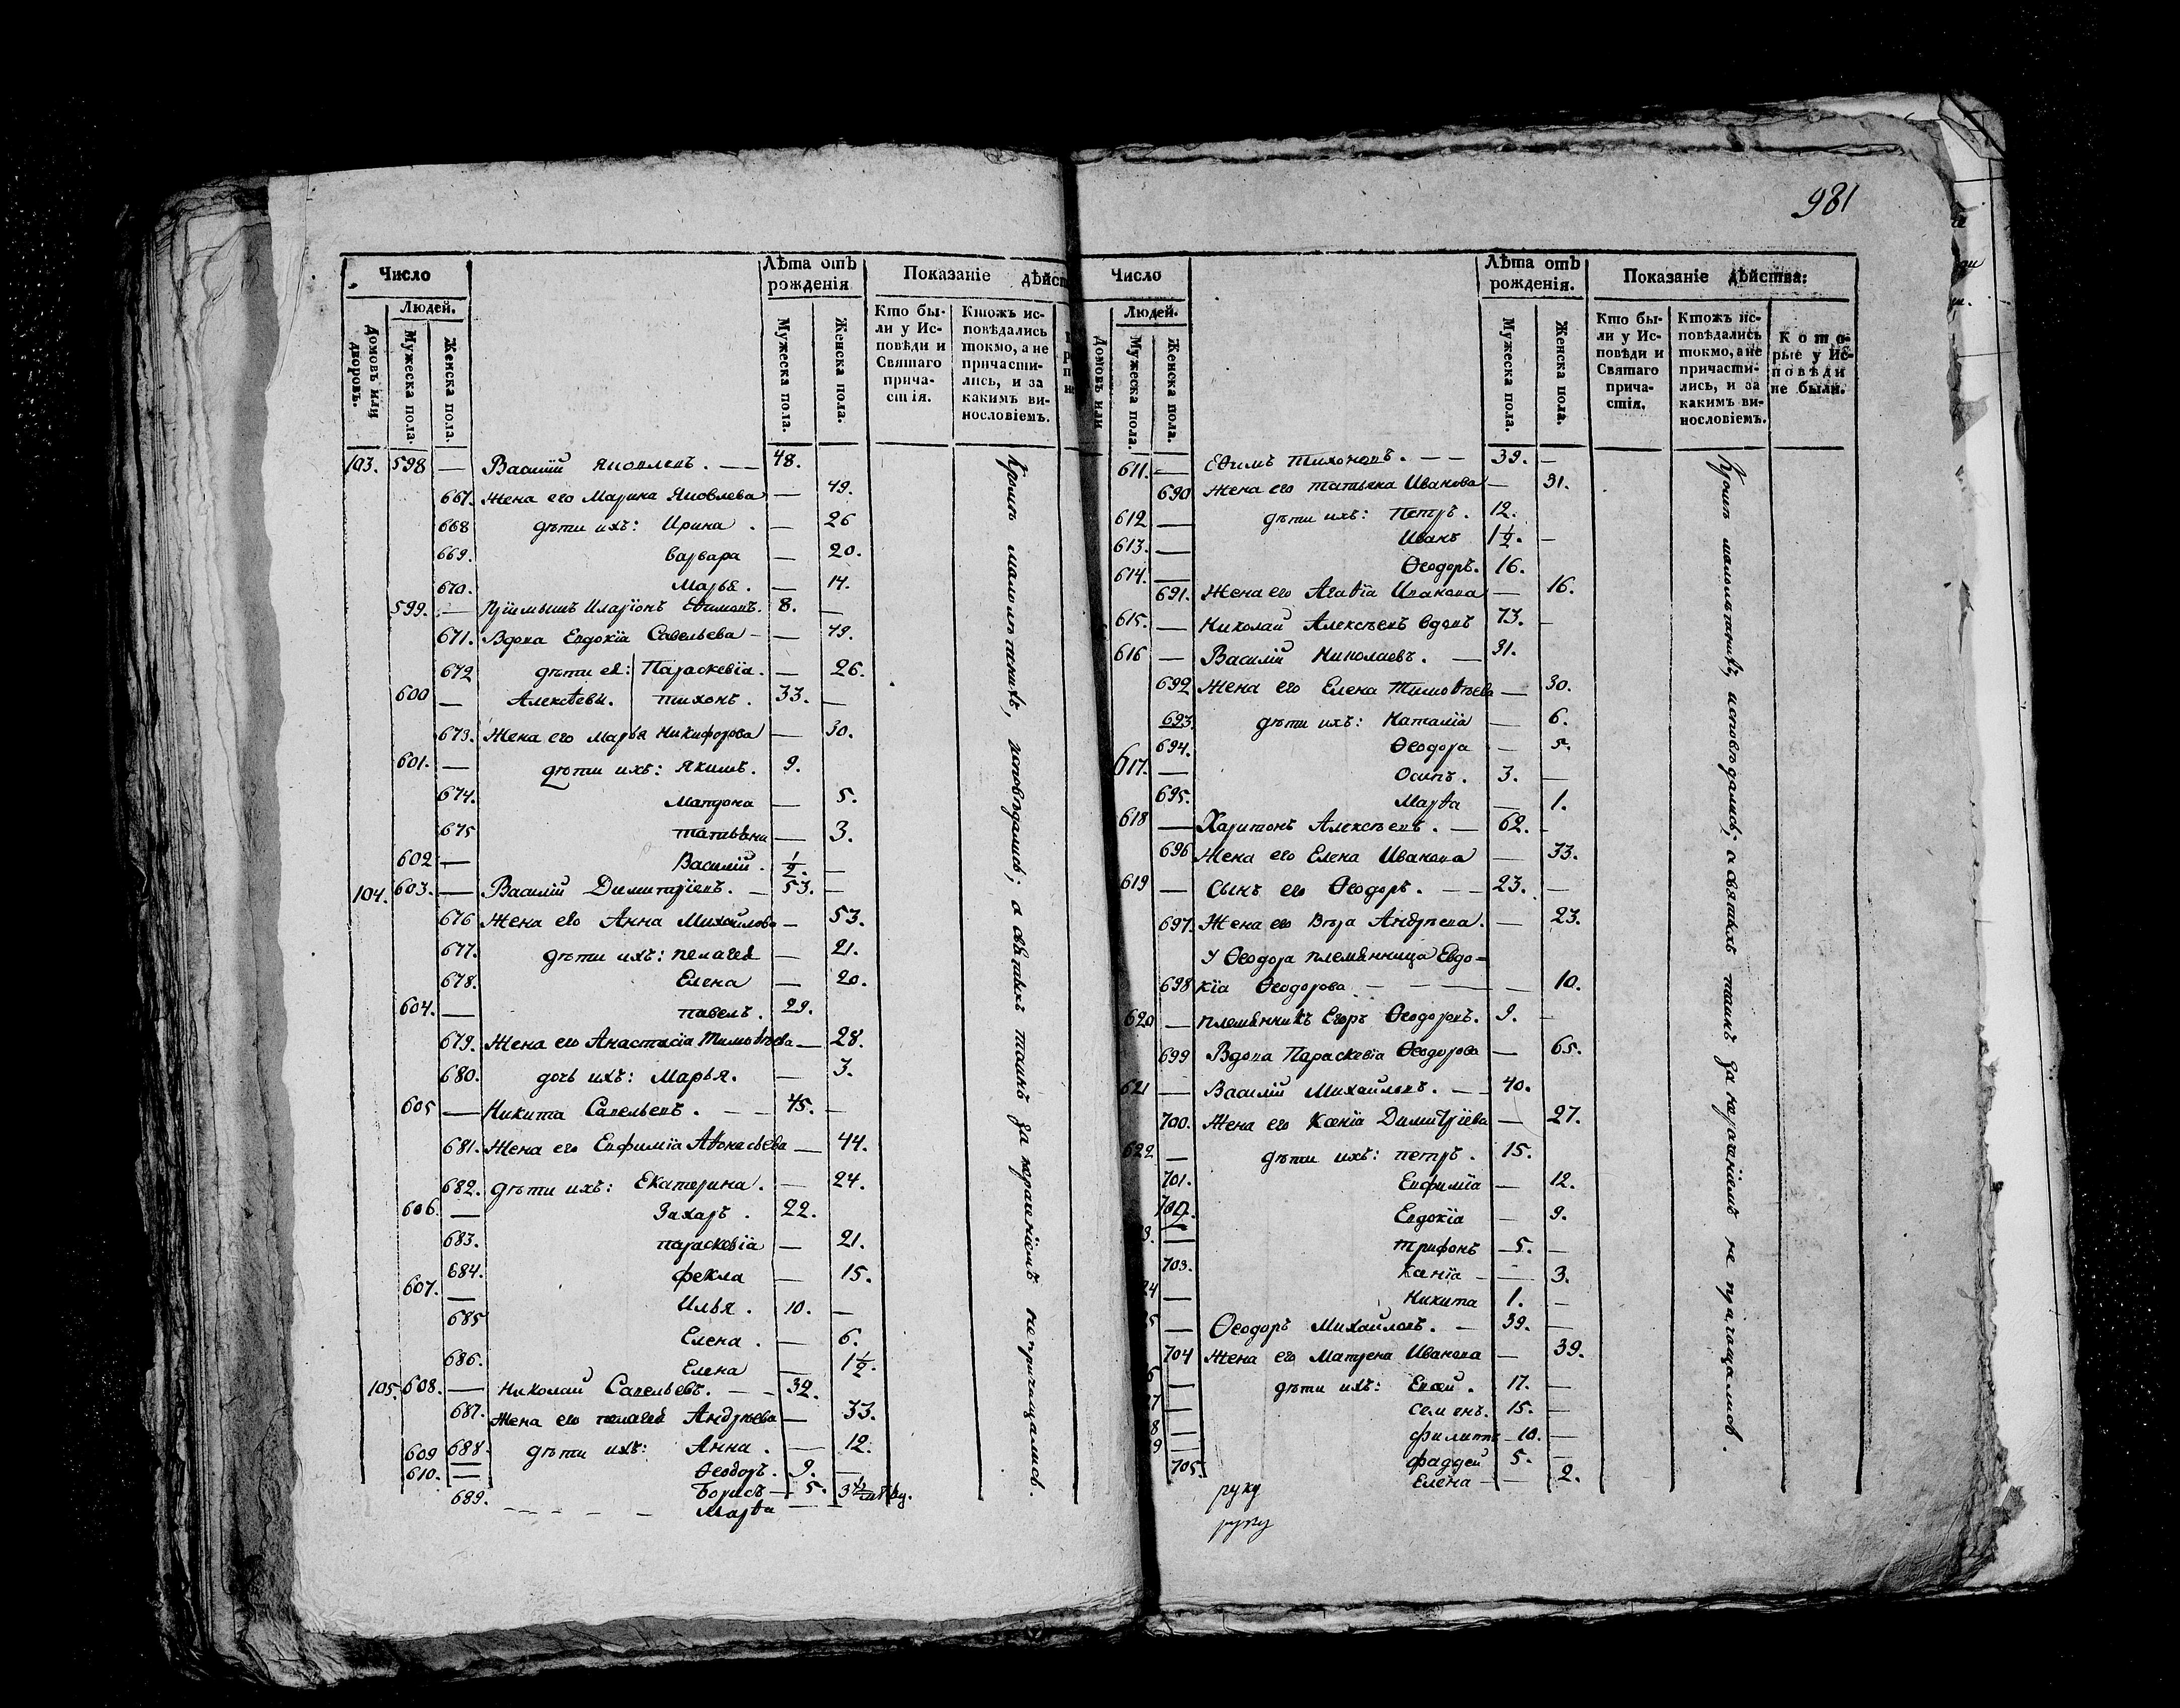 981
Число
Людей.
Домовъ или дворовъ.
Мужеска пола.
Женска пола.
Лѣта отъ рожденія
Мужеска пола.
Женска пола.
Показаніе дѣйст
Кто бы-
ли у Ис-
повѣди и
Святаго
прича-
стія.
Ктожъ ис-
повѣдались
токмо, а не
причасти-
лись, и за
какимъ ви-
нословіемъ.
103. 598 — Василій Яковлевъ. — 48.
667. Жена его Марина Яковлева — 49.
668 дѣти ихъ: Ирина . — 26
669. Варвара — 20.
670. Марья . — 14.
599. — Пріимышъ Иларіонъ Еѳимовъ. 8. —
671. Вдова Евдокіа Савельева — 49.
672 дѣти ея: Параскевіа. — 26.
600 — Алексѣевы. Тихонъ . 33. —
673. Жена его Марья Никифорова — 30.
601. — дѣти ихъ: Якимъ. 9.
674. Мавдона — 5.
675 Татьяна — 3.
602 — Василій . ½. —
104. 603. — Василій Димитріевъ. — 53. —
676 Жена его Анна Михайлова — 53.
677. дѣти ихъ: Пелагея — 21.
678. Елена — 20.
604. — Павелъ . 29.
679. Жена его Анастасіа Тимоѳѣева — 28.
680. дочь ихъ: Марья. — 3.
605 — Никита Савельевъ . — 45. —
681. Жена его Евфиміа Аѳонасьева — 44.
682. дѣти ихъ: Екатерина . — 24.
606. — Захаръ . 22.
683. Параскевіа — 21.
684. Фекла — 15.
607. — Илья . 10. —
685 Елена . — 6.
686. Елена — 1½.
105. 608. — Николай Савельевъ. — 32.
687. Жена его Пелагея Андрѣева — 33.
688. дѣти ихъ: Анна . — 12.
609 — Ѳеодоръ. 9. —
610. — Борисъ — 5.
689. Марѳа —
Кромѣ малолѣтнихъ, исповѣдались; а святыхъ таинъ за нераченіемъ не причащались.
Число
Людей.
Домовъ или
Мужеска пола.
Женска пола.
Лѣта отъ рожденія.
Мужеска пола.
Женска пола.
Показаніе дѣйства:
Кто бы-
ли у Ис-
повѣди и
Святаго
прича-
стія.
Ктожъ ис-
повѣдались
токмо, а не
причасти-
лись, и за
какимъ ви-
нословіемъ.
Кото-
рые у Ис-
повѣди
не были.
611. — Еѳимъ Тихоновъ . — 39. —
690 Жена его Татьяна Иванова — 31.
612 — дѣти ихъ: Петръ . 12.
613. — Иванъ 1½. —
614. — Ѳеодоръ. 16.
691. Жена его Агаѳіа Иванова — 16.
615. — Николай Алексѣевъ вдовъ 73. —
616 — Василій Николаевъ. — 31.
692 Жена его Елена Тимоѳѣева — 30.
693 дѣти ихъ: Наталіа — 6.
694. Ѳеодора — 5.
617. — Осипъ . 3. —
695. Марѳа — 1.
618 — Харитонъ Алексѣевъ . — 62. -
696 Жена его Елена Иванова — 33.
619 — Сынъ его Ѳеодоръ. — 23. —
697. Жена его Вѣра Андрѣева . — 23.
У Ѳеодора племянница Евдо-
698 кіа Ѳеодорова — 10.
620 — Племянникъ Егоръ Ѳеодоровъ. 9. —
699 Вдова Параскевіа Ѳеодорова — 65.
621 — Василій Михайловъ. — 40.
700. Жена его Ксеніа Димитріева — 27.
622 — дѣти ихъ: Петръ . 15.
701. Евфиміа — 12.
702. Евдокіа — 9.
3. — Трифонъ 5. —
703. Ксеніа — 3.
24 — Никита 1. —
5 — Ѳеодоръ Михайловъ. — 39. —
704 Жена его Матрена Иванова — 39.
6 — дѣти ихъ: Евсей . 17. —
27 — Семенъ. 15. —
8 — Филиппъ 10. —
9 — Фаддей 5. —
705. Елена — 2.
Кромѣ малолѣтнихъ, исповѣдались; а святыхъ таинъ за нераченіемъ не причащались.
руку
руку